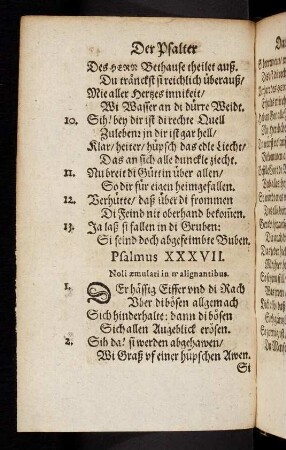 Der Psalter
Des HERN Bethause theilet auß.
Du tränckst si reichlich überauß/
Mit aller Hertzes innikeit/
Wi Wasser an di dürre Weidt.
10. Sih/ bey dir ist di rechte Quell
Zuleben: jn dir ist gar hell/
Klar/ heiter/ hüpsch das edle Liecht/
Das an sich alle dunckle ziecht.
11. Nu breit di Gütt in über allen/
So dir für eigen heimgefallen.
12. Verhütte/ daß über di frommen
Di Feind nit oberhand bekom̃en.
13. Ja laß si fallen in di Gruben:
Si seind doch abgefeimbte Buben.
Psalmus XXXVII.
Noli æmulari in malignantibus.
1. DEr hässig Eiffer vnd di Rach
Vber di bösen allgemach
Sich hinderhalte: dann di bösen
Sich allen Augeblick erösen.
2. Sih da! si werden abgehawen/
Wi Graß vf einer hüpschen Awen.
Si